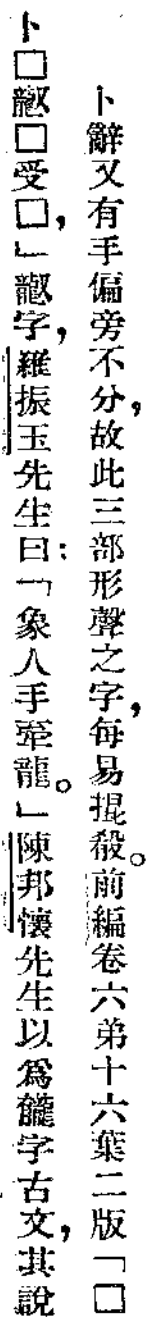 卜辭又有手偏旁不分，故此三部形聲之字，每易掍殽。前編卷六弟十六葉二版「□
卜□𪚔□受□，」𪚔字，羅振玉先生曰：「象人手牽龍。」陳邦懷先生以爲龓字古文，其說